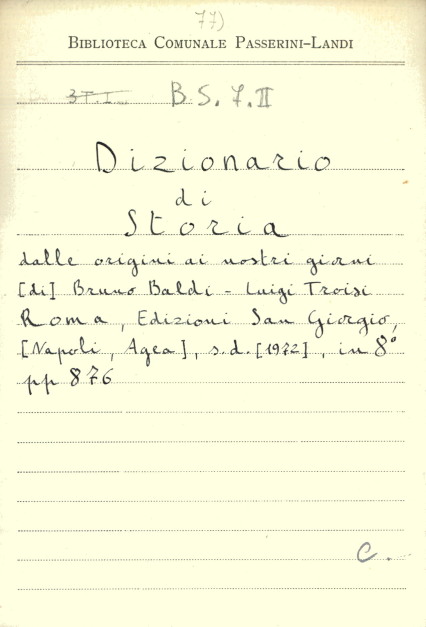 77)
BIBLIOTECA COMUNALE PASSERINI-LANDI
3T.I
B S. 7. II
Dizionario
di
Storia
dalle origini ai nostri giorni
[di] Bruno Baldi - Luigi Troisi
Roma, Edizioni San Giorgio,
[Napoli, Agea], s.d. [1972], in 8°
pp 876
C.